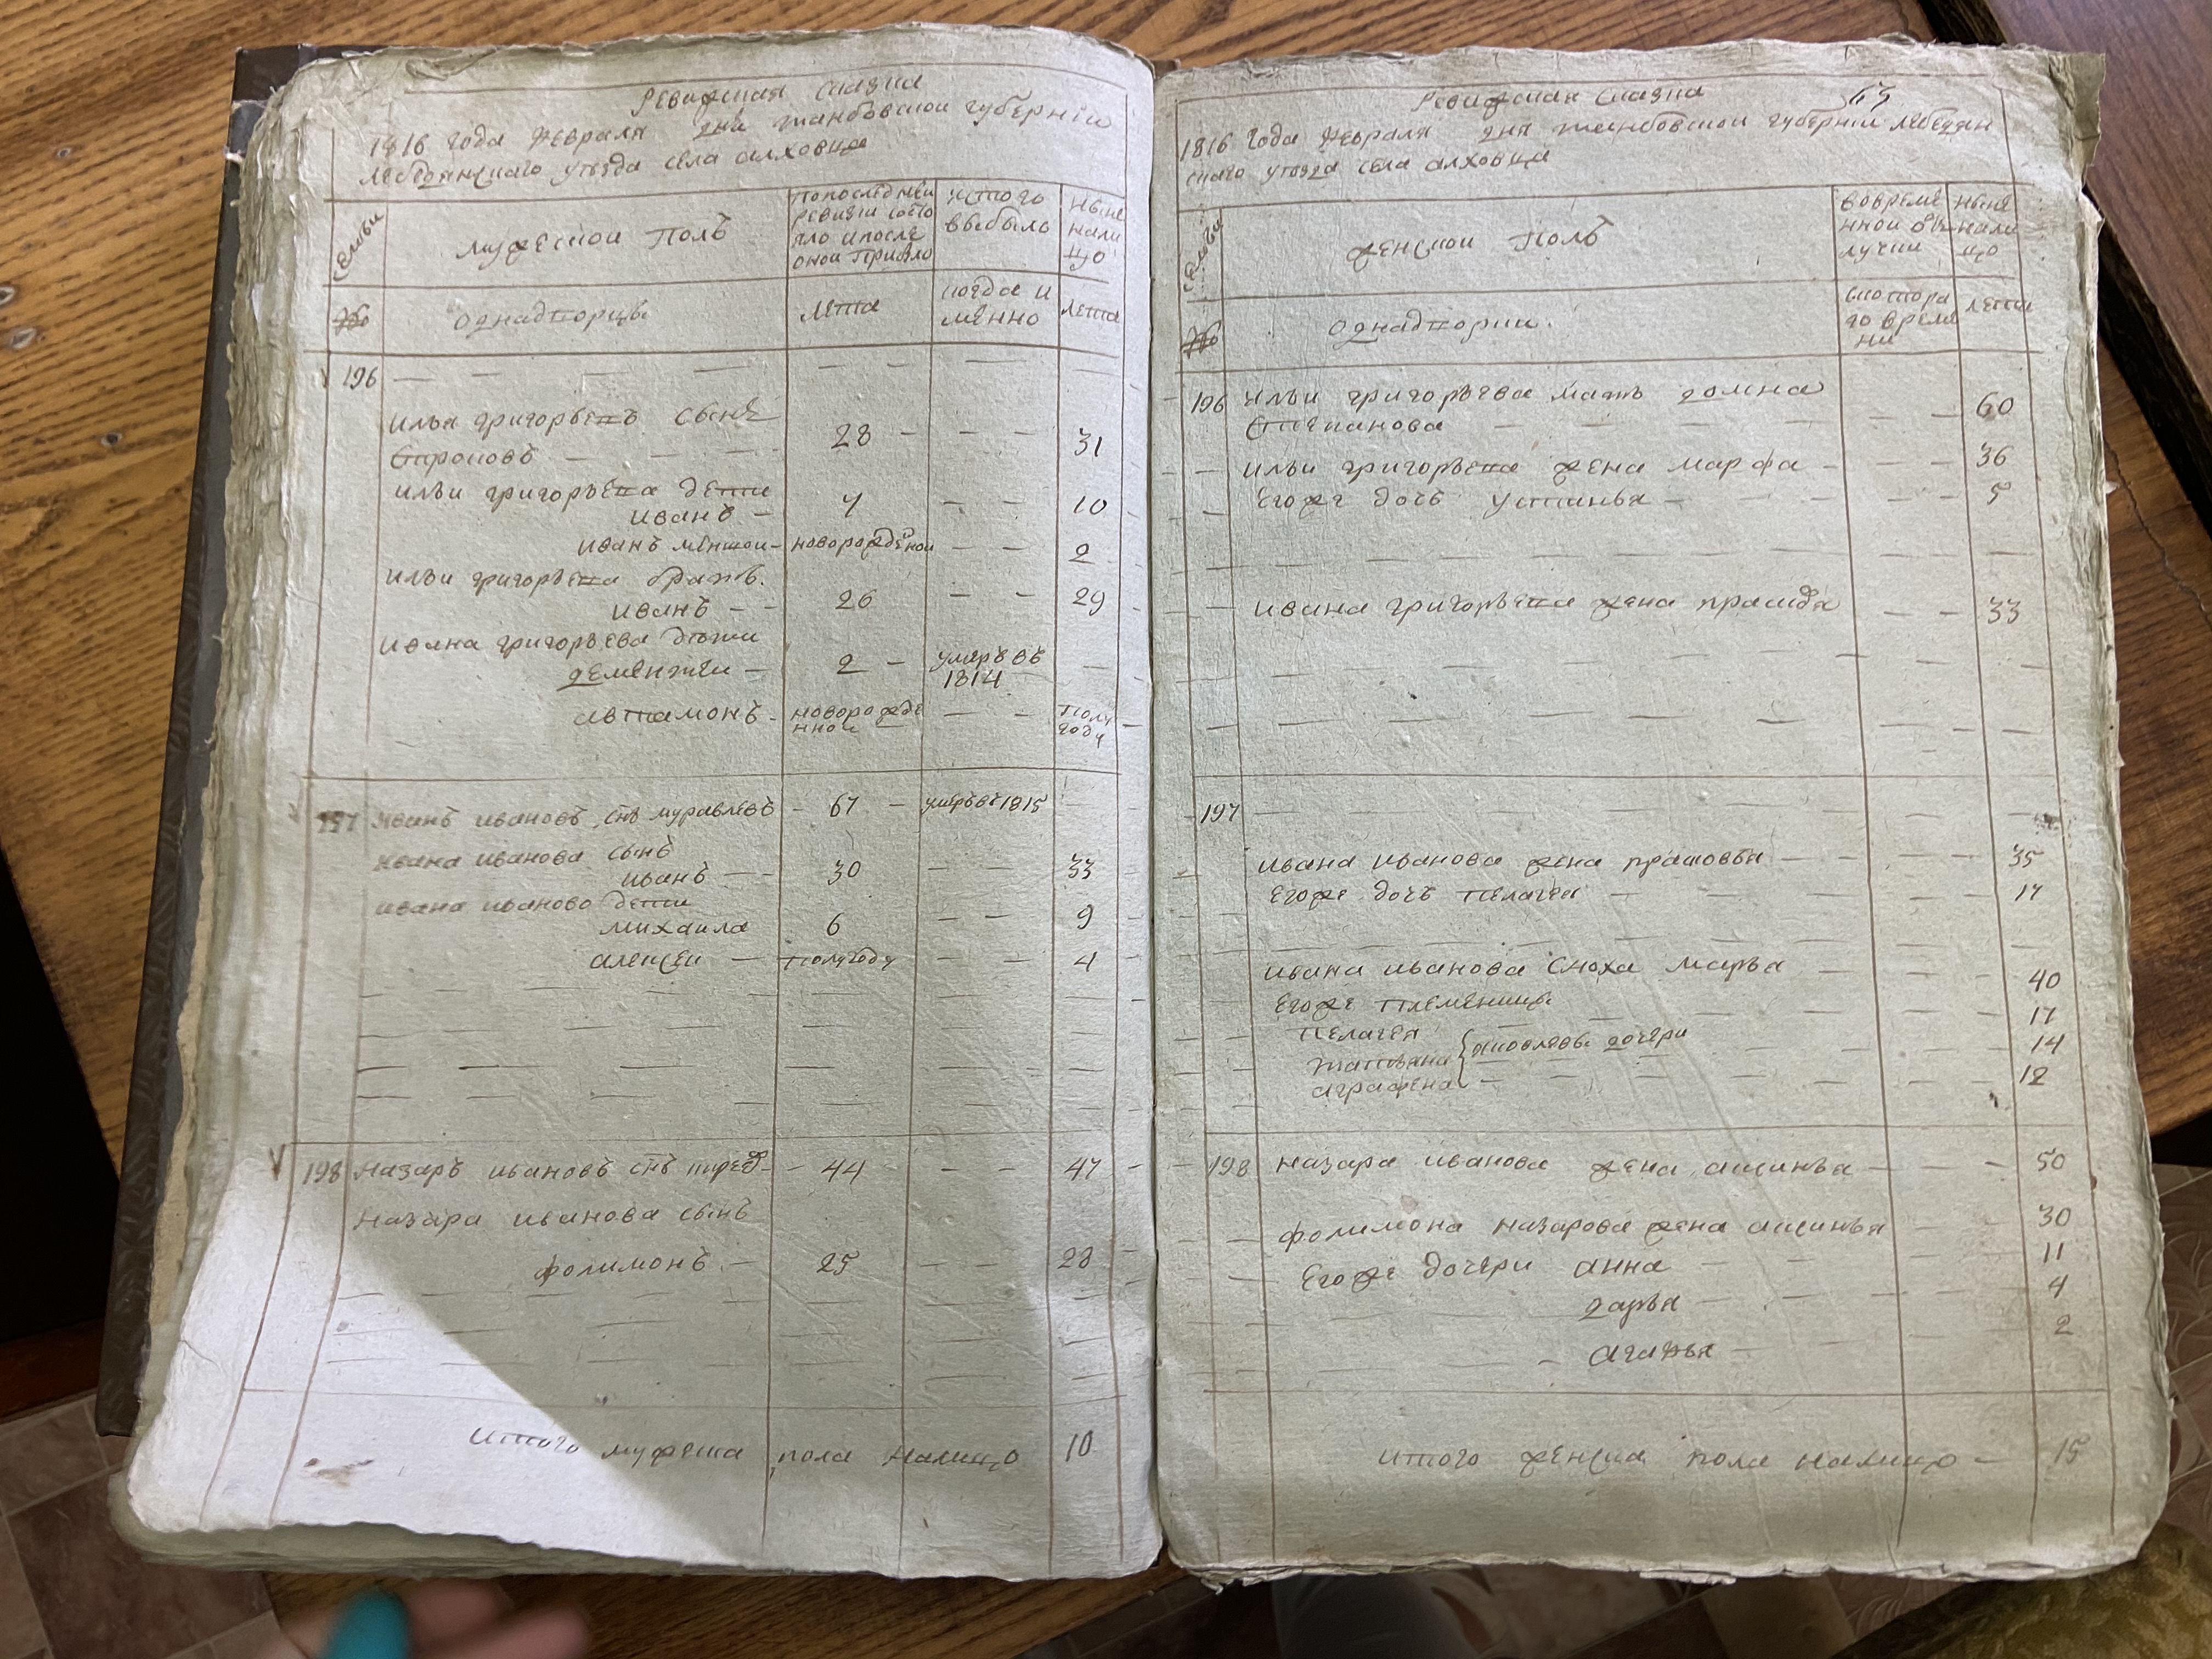 Ревижская сказка
1816 года февраля дня танбовскои губернiи
лебедянскаго уезда села олховца
Семьи
мужескои полъ
попоследнеи
ревизи состо
яло ипосле
онои прибыло
исто го
выбыло
ныне
нали
цо
№
однадворцы
лета
когда и
мѣнно
лета
196
илья григорьевъ сынъ
28
31
Спроповъ
ильи григорьева дети
иванъ
7
10
иванъ меншои
новорожденои
2
ильи григорьева братъ.
иванъ
26
29
ивана григорьева дѣти
дементеи
2
умеръ въ
1814
автамонъ
новорожде
ннои
полу
году
197 иванъ ивановъ снъ муравлевъ
67
умеръвъ1815
ивана иванова сынъ
иванъ
30
33
ивана иваново дети
михаила
6
9
алексеи
полугоду
4
198 назаръ ивановъ снъ
44
47
назара иванова сынъ
фолимонъ
25
28
итого мужеска пола налицо 10
Ревижская сказка
63
1816 года февраля дня танбовскои губернiи лебедян
скаго уезда села олховца
Семьи
женскои полъ
вовреме
ннои от
лучки
ныне
нали
цо
№
однадворки.
скотора
го време
ни
лета
196 ильи григорьева мать домна
60
Степанова
ильи григорьева жена марфа
36
Егоже дочь устинья
5
ивана григорьева жена прасковья
33
197
ивана иванова жена прасковья
35
Егоже дочь пелагея
17
ивана иванова сноха марья
40
Егоже племеницы
17
пелагея
татьяна
яковлевы дочери
14
аграфена
12
198 назара иванова жена аксинья
50
фолимона назарова жена аксинья
30
Егоже дочери анна
11
дарья
4
агафья
2
итого женска пола налицо 15